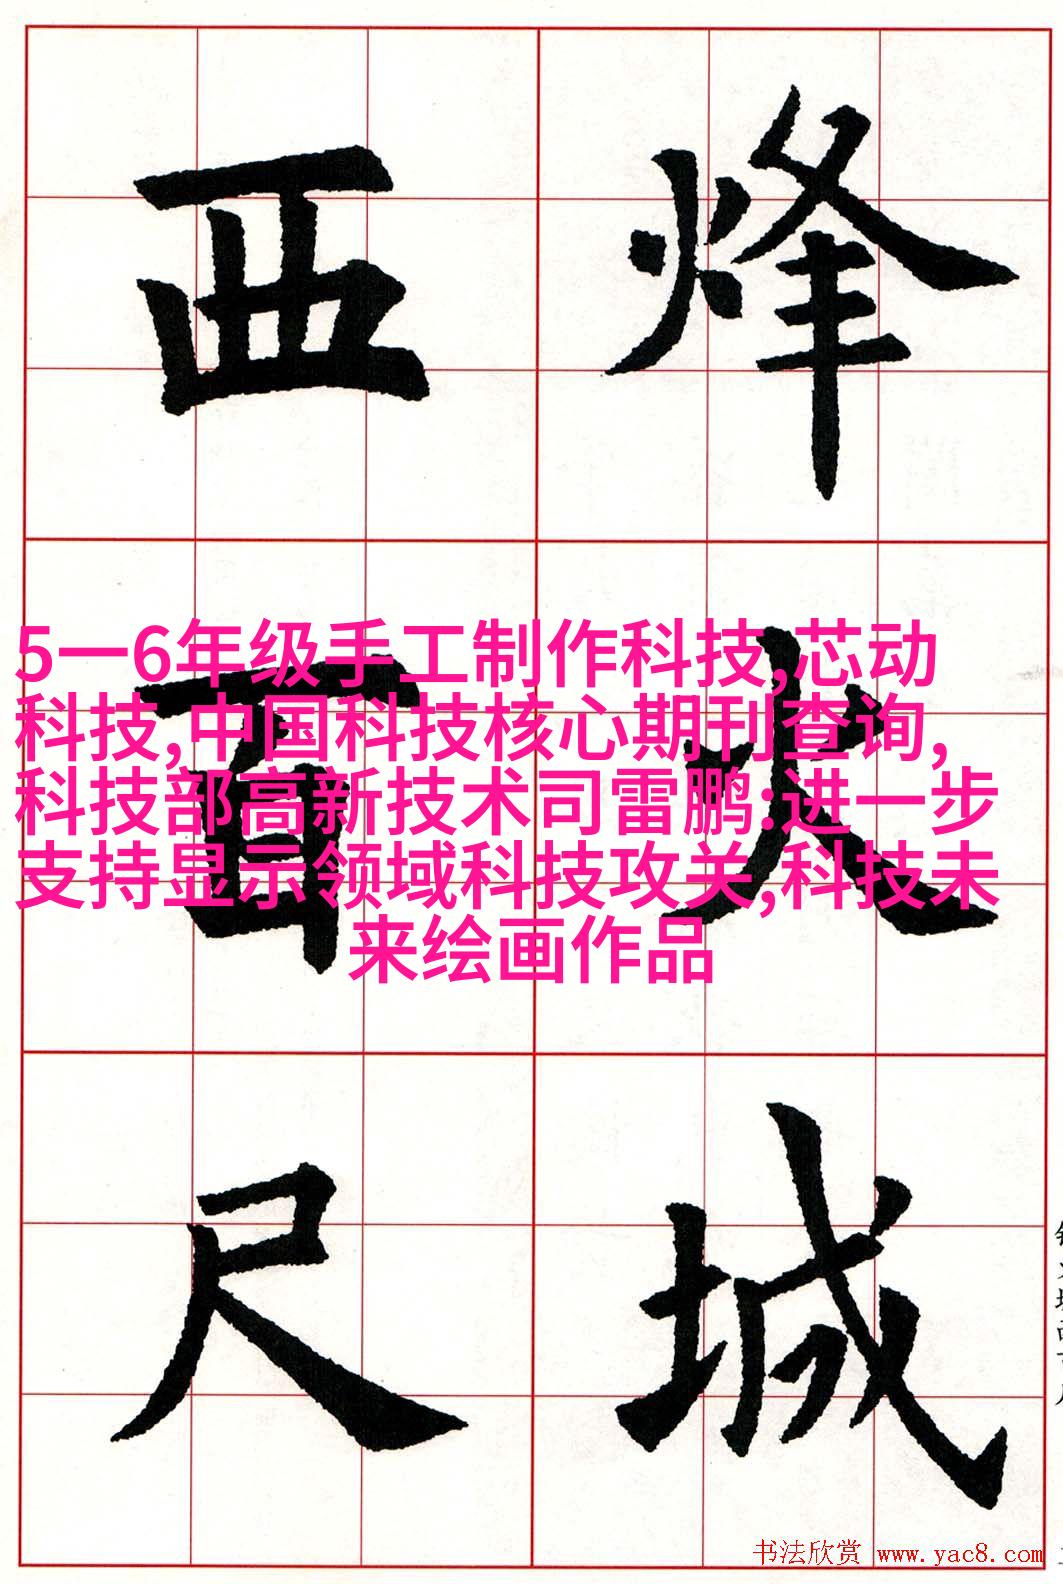 烽火城
西百尺
5一6年级手工制作科技,芯动
科技,中国科技核心期刊查询,
科技部高新技术司雷鹏:进一步
支持显示领域科技攻关,科技未
来绘画作品
书法欣赏 www.yac8.com